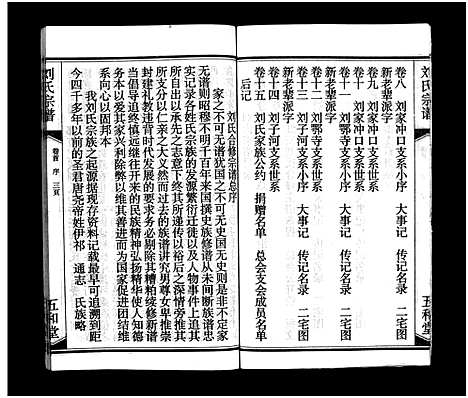 刘氏宗谱
五和堂
卷八 刘家冲口支系小序 大事记 传记名录 二宅图
卷九 刘家冲口支系世系
新老辈派字
卷十 刘鄂寺支系小序 大事记 传记名录 二宅图
卷十一 刘鄂寺支系世系
新老辈派字
卷十三 刘子河支系小序 大事记 传记名录 二宅图
卷十四 刘子河支系世系
新老辈派字
卷十五 刘氏家族公约 捐赠名单 总会支会成员名单
后记
刘氏合修宗谱总序
家之不可无谱犹国之不可无史国无史则是非不定家
无谱则昭穆不明千百年来国撰史族修谱从未间断族谱忠
实记录各姓氏宗族的发源繁衍迁徙以及人物事件上追其
所自出以承先之志意下终其所递传以裕后之深情旁推其
所支分以广仁亲之大义然而过去的族谱讲究男尊女卑推崇
封建礼教违背时代发展的要求务必剔除其糟粕续修新谱
当倡导追终慎远继往开来的民族精神弘扬精华使人知德
务本以爱其家兴利除弊以维其善进而为国家促进团结维
系向心以固邦本
我刘氏宗族之起源据现存资料记载最早可追溯到距
今四千多年以前的圣君唐尧帝姓伊祁 通志 氏族略
刘氏宗谱
卷首 序 三页
五和堂